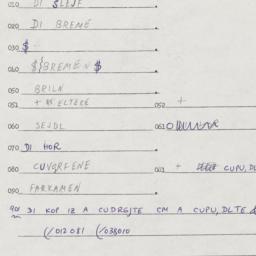 010 DI SLEJF
020 DI BREME
030 $
040 $ BREMEN $
050 BRILN
051 + ELTERE 052 +
060 SEJDL 061
070 DI HOR
080 CUVQRFENE 081 + CUPU, DL
090 FARKAMEN
901 DI KOP IZ A CUDREJTE CM A CUPU, DLTE
(/012 081 (/038010